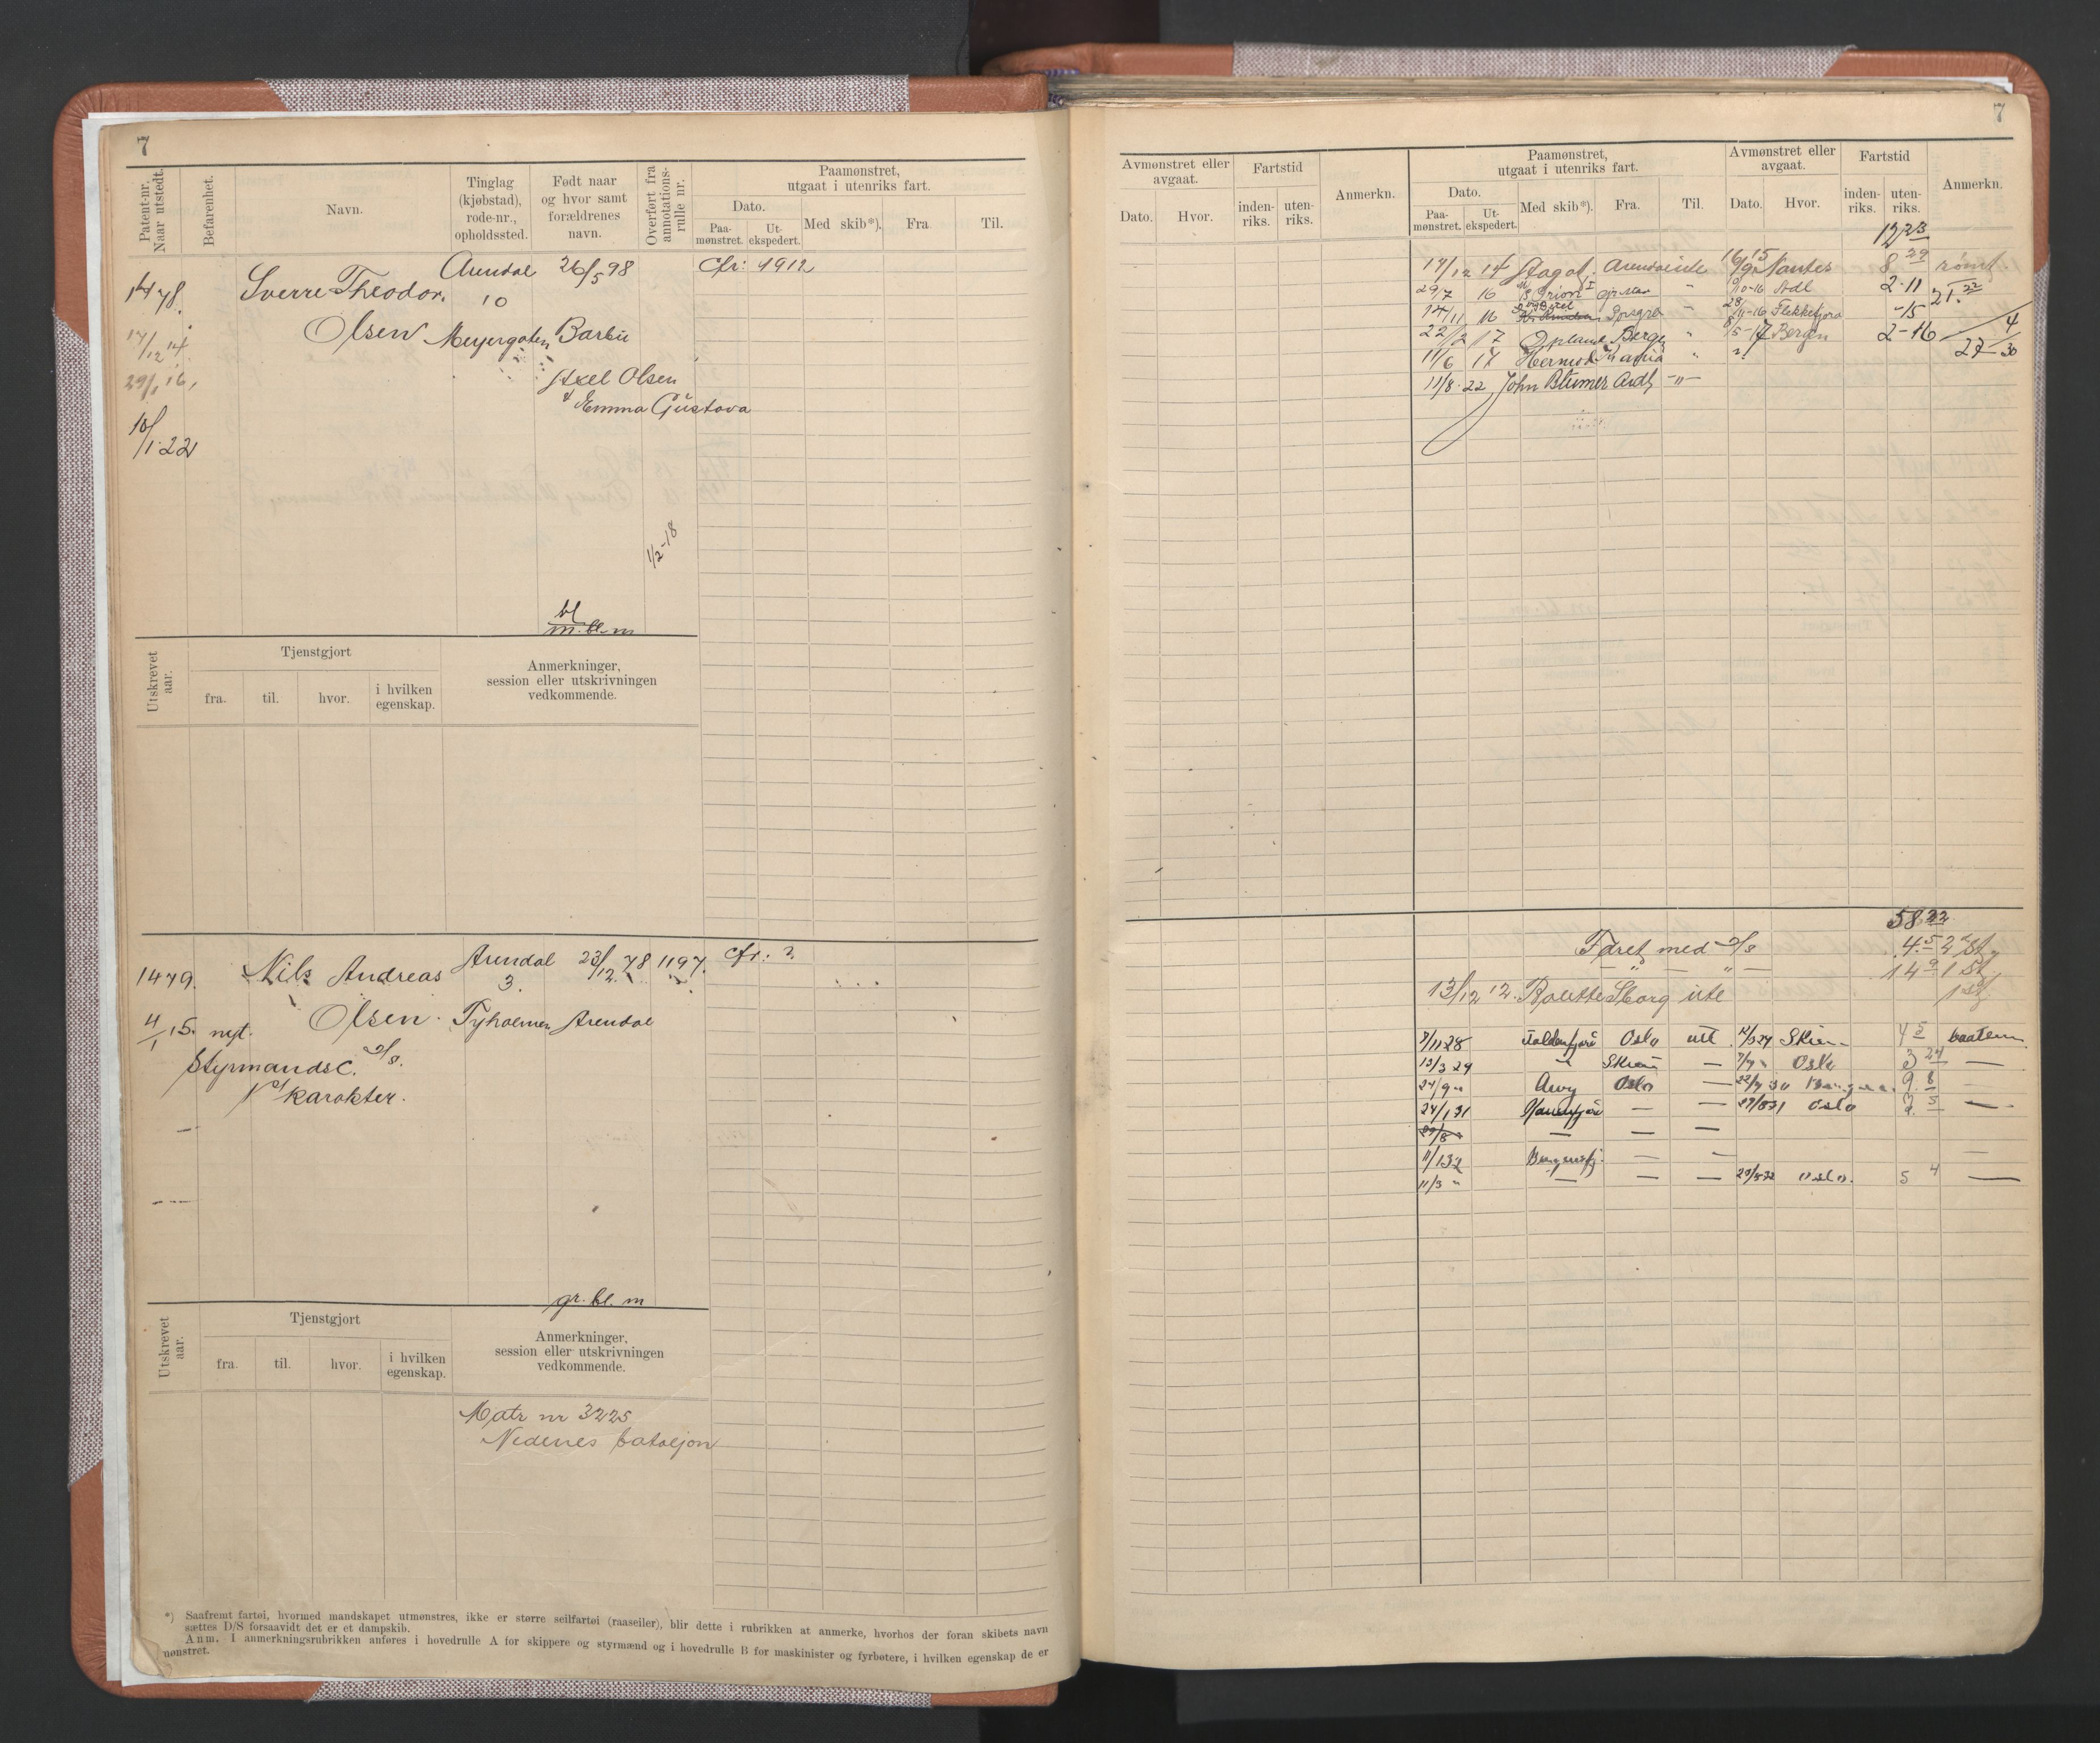 7
Patent-nr. Naar utstedt.
Befarenhet.
Navn.
Tinglag (kjøbstad), rode-nr., opholdssted.
Født naar og hvor samt forældrenes navn.
Overført fra annotations-rulle nr.
Paamønstret, utgaat i utenriks fart.
Dato.
Paa-mønstret.
Ut-ekspedert.
Med skib*).
Fra
Til.
1478.
Sverre Theodor
Arendal
26/5 98
cfr: 1912
10
Olsen
Meyergaten
Barbu
17/12 14.
Axel Olsen
29/7 16,
& Emma Gustava
10/1 22
1/2-18
bl
m. bl. m
Utskrevet aar.
Tjenstgjort
fra.
til.
hvor.
i hvilken egenskap.
Anmerkninger, session eller utskrivningen vedkommende.
1479.
Nils Andreas
Arendal
23/12 78
1197.
cfr: 2
3.
Olsen.
Tyholmen
Arendal
4/1 15. nyt.
Styrmandsc.
karakter.
gr. bl. m
Utskrevet aar.
Tjenstgjort
fra.
til.
hvor.
i hvilken egenskap.
Anmerkninger, session eller utskrivningen vedkommende.
Matr nr 3225
Nedenes bataljon
*) Saafremt fartøi, hvormed mandskapet utmønstres, ikke er større seilfartøi (raaseiler), blir dette i rubrikken at anmerke, hvorhos der foran skibets navn
sættes D/S forsaavidt det er et dampskib.
Anm. I anmerkningsrubrikken anføres i hovedrulle A for skippere og styrmænd og i hovedrulle B for maskinister og fyrbøtere, i hvilken egenskap de er
mønstret.
7
Avmønstret eller avgaat.
Dato.
Hvor.
Fartstid
inden-riks.
uten-riks.
Anmerkn.
Paamønstret, utgaat i utenriks fart.
Dato.
Paa-mønstret.
Ut-ekspedert.
Med skib*).
Fra.
Til.
Avmønstret eller avgaat.
Dato.
Hvor.
Fartstid
inden-riks.
uten-riks.
Anmerkn.
12 23
17/12 14 Nantes 8 29 rømt
29/7 16 Orion " Adl 2-11 21.22
14/11 16 Flekkefjord -15
22/2 17 Opland Berge " Bergen 2-16 4
11/6 17 Hermod " 27 30
11/8 22 John Blumer Adl -"-
58 22
Faret med
4.5 2 St
14 9 1 St
13/12 12. Borg ute
1 St
7/11 28 Oslo utl Skien 4 5 baatsm
13/3 29 " Skien — Oslo 3 24 —
24/9 " Oslo — 22/7 30 9. 8 —
24/1 31 — — 29/8 31 Oslo 7. 5 —
29/8 " — — —
11/1 32 Bergensfj. — — —
11/3 " — — — 29/5 32 Oslo. 5 4 —